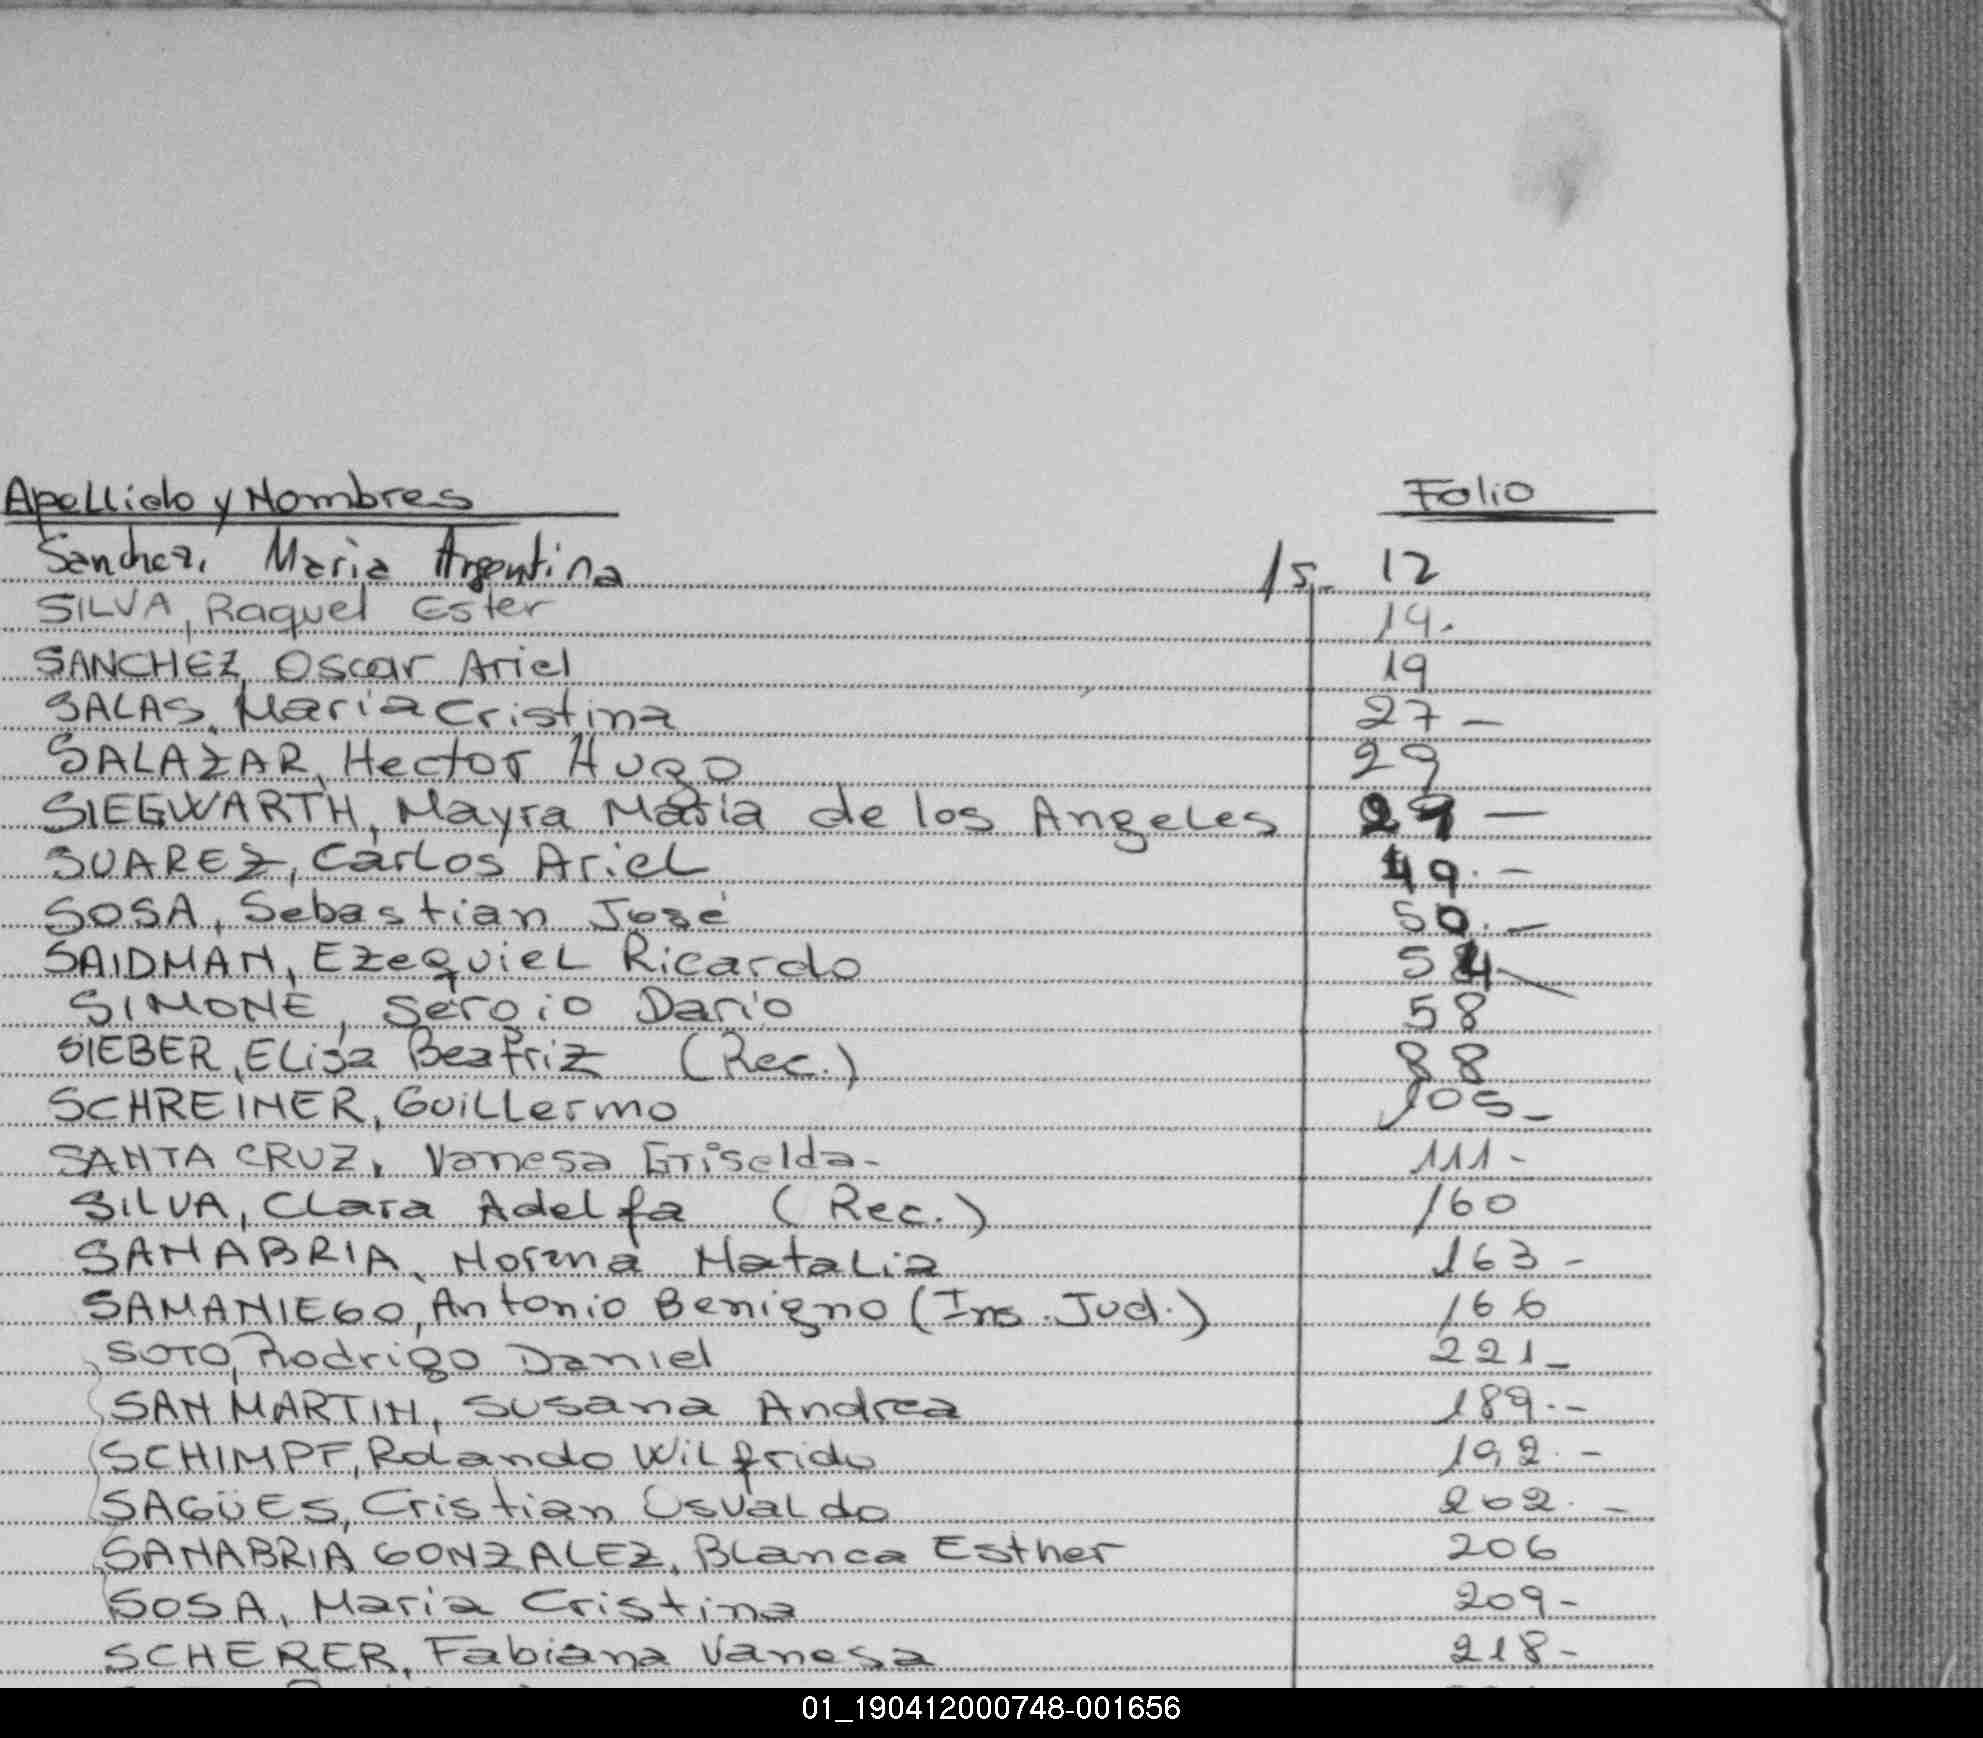 Apellido y Nombres Folio
Sanchez, Maria Argentina 15.- 12
SILVA, Raquel Ester 14.
SANCHEZ, Oscar Ariel 19
SALAS, Maria Cristina 27 -
SALAZAR, Hector Hugo 29
SIEGWARTH, Mayra Maria de los Angeles 29 -
SUAREZ, Carlos Ariel 49.-
SOSA, Sebastian José 50.-
SAIDMAN, Ezequiel Ricardo 54.-
SIMONE, Sergio Dario 58
SIEBER, Elisa Beatriz (Rec.) 88
SCHREINER, Guillermo 105-
SANTA CRUZ, Vanesa Griselda- 111-
SILVA, Clara Adelfa (Rec.) 160
SANABRIA, Norma Natalia 163-
SAMANIEGO, Antonio Benigno (Ins. Jud.) 166
SOTO, Rodrigo Daniel 221-
SAN MARTIN, Susana Andrea 189.-
SCHIMPF, Rolando Wilfrido 192.-
SAGÜES, Cristian Osvaldo 202.-
SANABRIA GONZALEZ, Blanca Esther 206
SOSA, Maria Cristina 209-
SCHERER, Fabiana Vanesa 218-
01_190412000748-001656